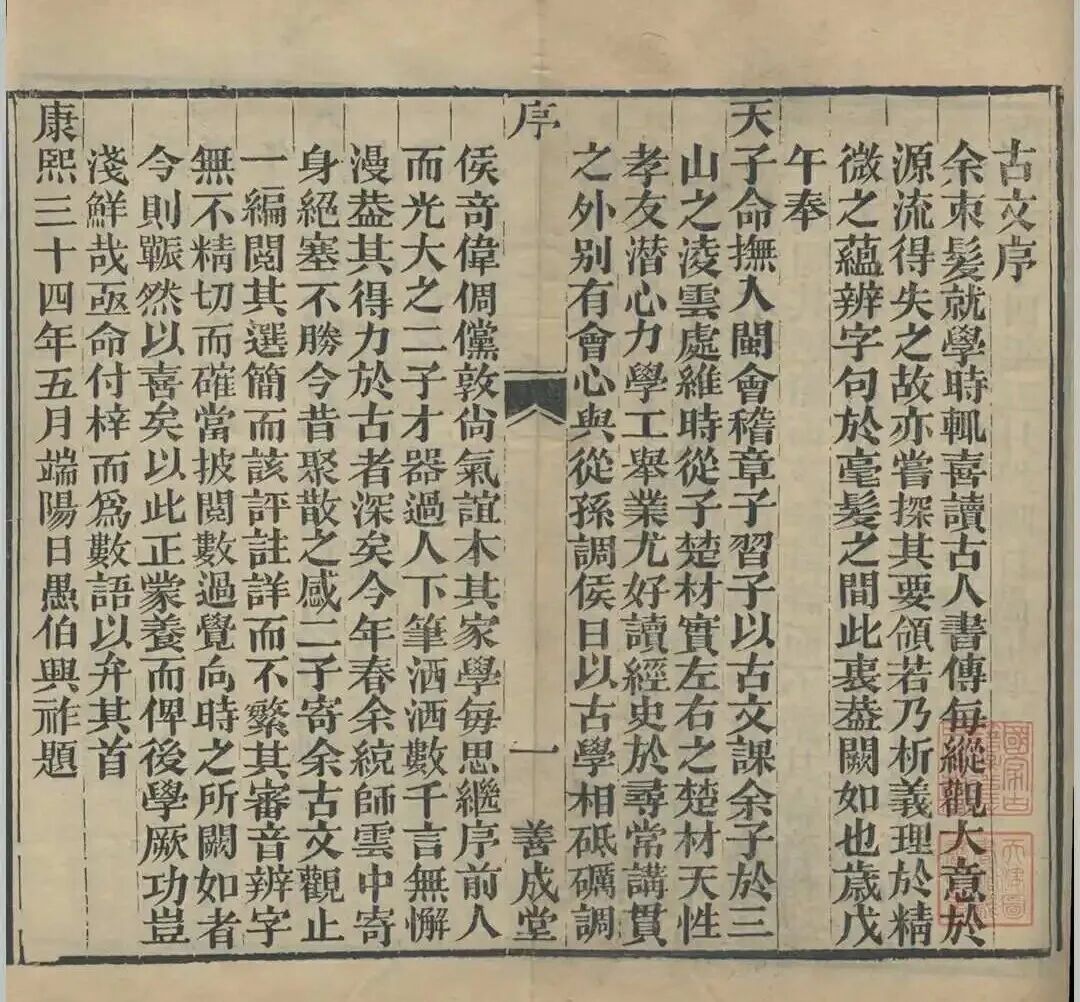 古文序
余束髮就學時輒喜讀古人書傳每縱觀大意於
源流得失之故亦嘗探其要領若乃析義理於精
微之蘊辨字句於毫髮之間此衷葢闕如也歲戊
午奉
天子命撫入閩會稽章子習子以古文課余子於三
山之凌雲處維時從子楚材實左右之楚材天性
孝友潛心力學工舉業尤好讀經史於尋常講貫
之外别有會心與從孫調侯日以古學相砥礪調
序
一
善成堂
侯竒偉倜儻敦尙氣誼本其家學每思繼序前人
而光大之二子才器過人下筆洒洒數千言無懈
漫葢其得力於古者深矣今年春余統師雲中寄
身絕塞不勝今昔聚散之感二子寄余古文觀止
一編閱其選簡而該評註詳而不繁其審音辨字
無不精切而確當披閱數過覺向時之所闕如者
今則冁然以喜矣以此正蒙養而俾後學厥功豈
淺鮮哉亟命付梓而爲數語以弁其首
康熙三十四年五月端陽日愚伯興祚題